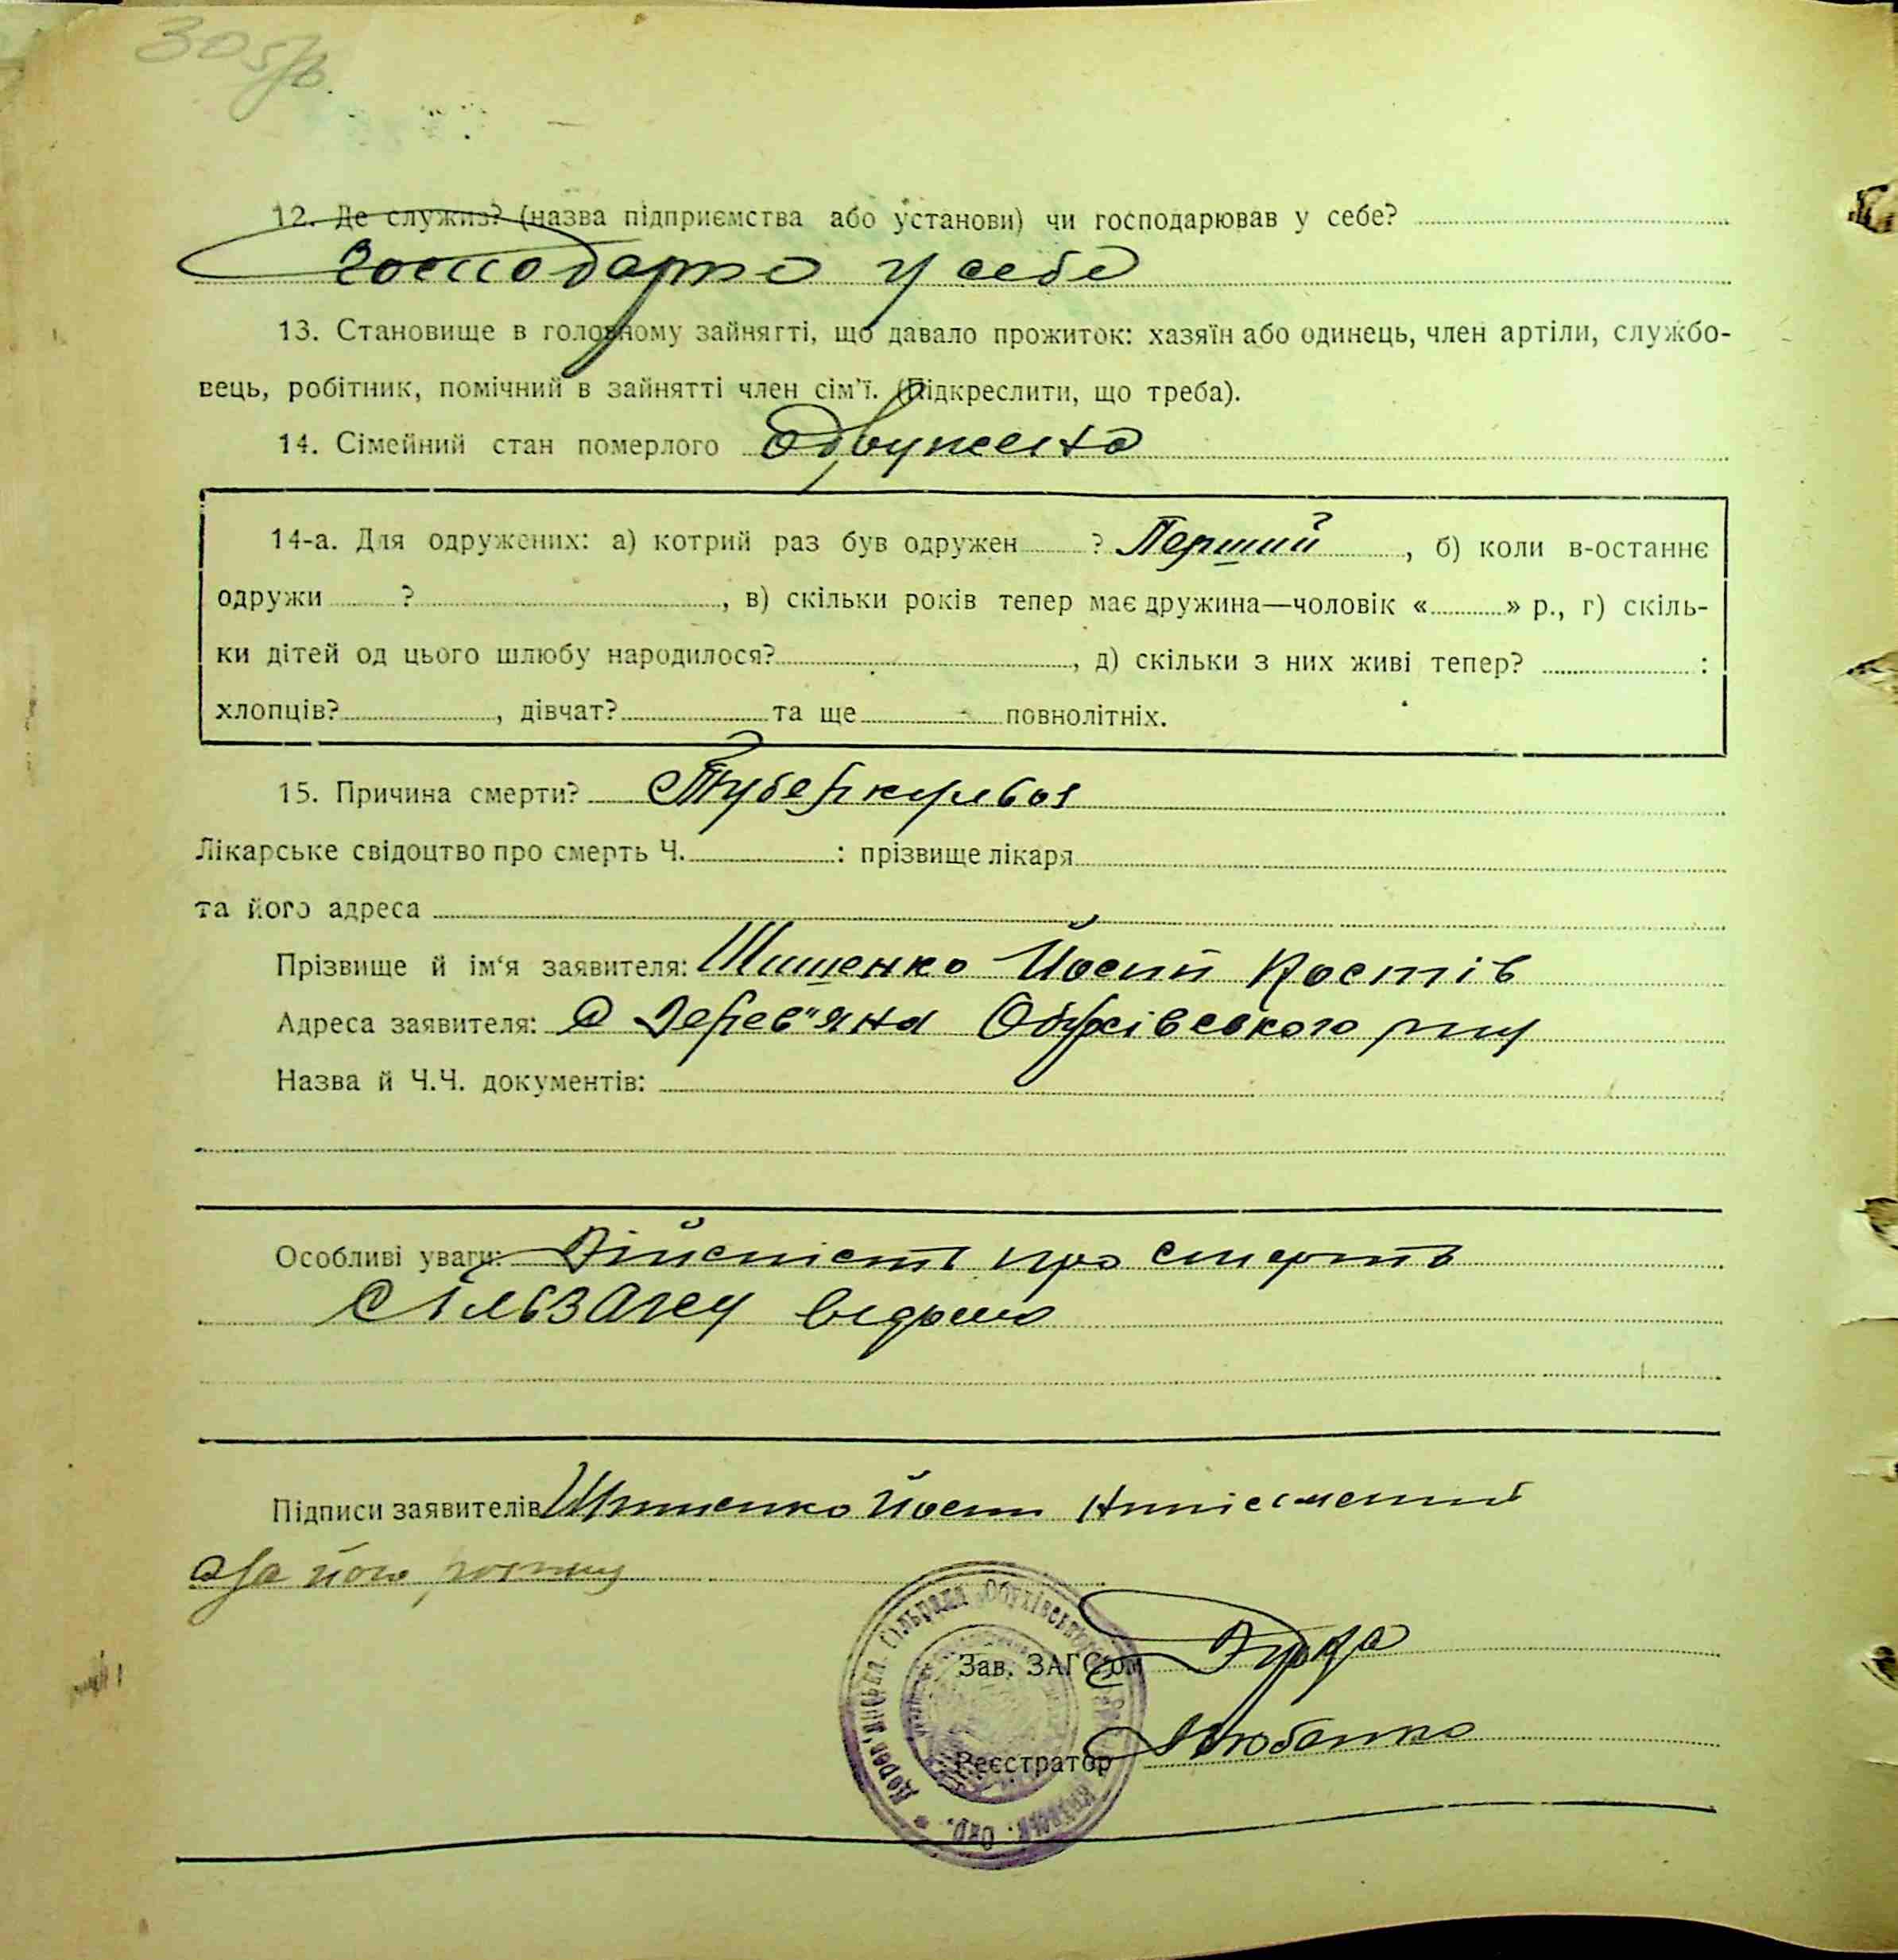 305 зв.
12. Де служив? (назва підприємства або установи) чи господарював у себе?
у себе
13. Становище в головному зайнятті, що давало прожиток: хазяїн або одинець, член артіли, службо-
вець, робітник, помічний в зайнятті член сім'ї. (Підкреслити, що треба).
14. Сімейний стан померлого
14-а. Для одружених: а) котрий раз був одружен ? Перший, б) коли в-останнє
одружи ?, в) скільки років тепер має дружина—чоловік « » р., г) скіль-
ки дітей од цього шлюбу народилося?, д) скільки з них живі тепер? :
хлопців?, дівчат? та ще повнолітніх.
15. Причина смерти? Туберкульоз
Лікарське свідоцтво про смерть Ч. : прізвище лікаря
та його адреса
Прізвище й ім'я заявителя: Шишенко Йосип Костів
Адреса заявителя: С Дерев"яна Обухівського р-ну
Назва й Ч.Ч. документів:
Особливі уваги: Дійсність про смерть
Сільзагсу відомо
Підписи заявителів Шишенко Йосип
а за його
Зав. ЗАГСом
Реєстратор
Дерев'янська Сільрада Обухівського Київськ. Окр.